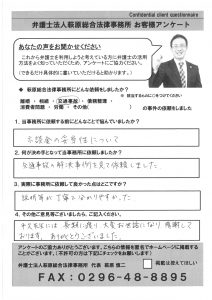 Confidential client questionnaire
弁護士法人萩原総合法律事務所 お客様アンケート
あなたの声をお聞かせください
これから弁護士を利用しようと考えている方に弁護士の活用
方法をよく知っていただくため、アンケートにご協力ください。
(できるだけ具体的に書いていただけると助かります。)
◆ 萩原総合法律事務所にどんな依頼をしましたか?
離婚・相続・交通事故・債務整理・
消費者問題・労働・その他(
の事件を依頼をしました
1. 当事務所に依頼する前にどんなことで悩んでいましたか?
示談金の妥当性について
2. 何が決め手となって当事務所に依頼しましたか?
交通事故の解決事例を見て依頼しました
3. 実際に事務所に依頼して良かった点はどこですか?
説明等が丁寧で分かりやすかった
4. その他ご意見等ございましたら、ご記入ください。
長期に渡り大変お世話になり感謝して
おります。ありがとうございました。
アンケートのご協力ありがとうございます。こちらの情報を匿名でホームページに掲載する
ことがございます。(不許可の方は下記にチェックをお願いします)
弁護士法人萩原総合法律事務所 代表 萩原慎二
掲載は控えてほしい
FAX:0296-48-8895